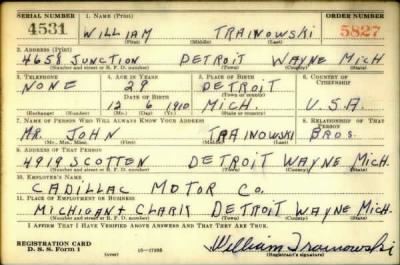 SERIAL NUMBER 1. NAME (Print) ORDER NUMBER
4531 WILLIAM TRAINOWSKI 5827
(First) (Middle) (Last)
2. ADDRESS (Print)
4658 JUNCTION DETROIT WAYNE MICH
(Number and street or R. F. D. number) (Town) (County) (State)
3. TELEPHONE 4. AGE IN YEARS 5. PLACE OF BIRTH 6. COUNTRY OF CITIZENSHIP
NONE 29 DETROIT
DATE OF BIRTH (Town or county)
12 6 1910 MICH. U.S.A.
(Exchange) (Number) (Mo.) (Day) (Yr.) (State or country)
7. NAME OF PERSON WHO WILL ALWAYS KNOW YOUR ADDRESS 8. RELATIONSHIP OF THAT PERSON
MR. JOHN TRAINOWSKI BROS.
(Mr., Mrs., Miss) (First) (Middle) (Last)
9. ADDRESS OF THAT PERSON
4919 SCOTTEN DETROIT WAYNE MICH.
(Number and street or R. F. D. number) (Town) (County) (State)
10. EMPLOYER'S NAME
CADILLAC MOTOR CO.
11. PLACE OF EMPLOYMENT OR BUSINESS
MICHIGAN + CLARK DETROIT WAYNE MICH.
(Number and street or R. F. D. number) (Town) (County) (State)
I AFFIRM THAT I HAVE VERIFIED ABOVE ANSWERS AND THAT THEY ARE TRUE.
REGISTRATION CARD William Trainowski
D. S. S. Form 1 (over) (Registrant's signature)